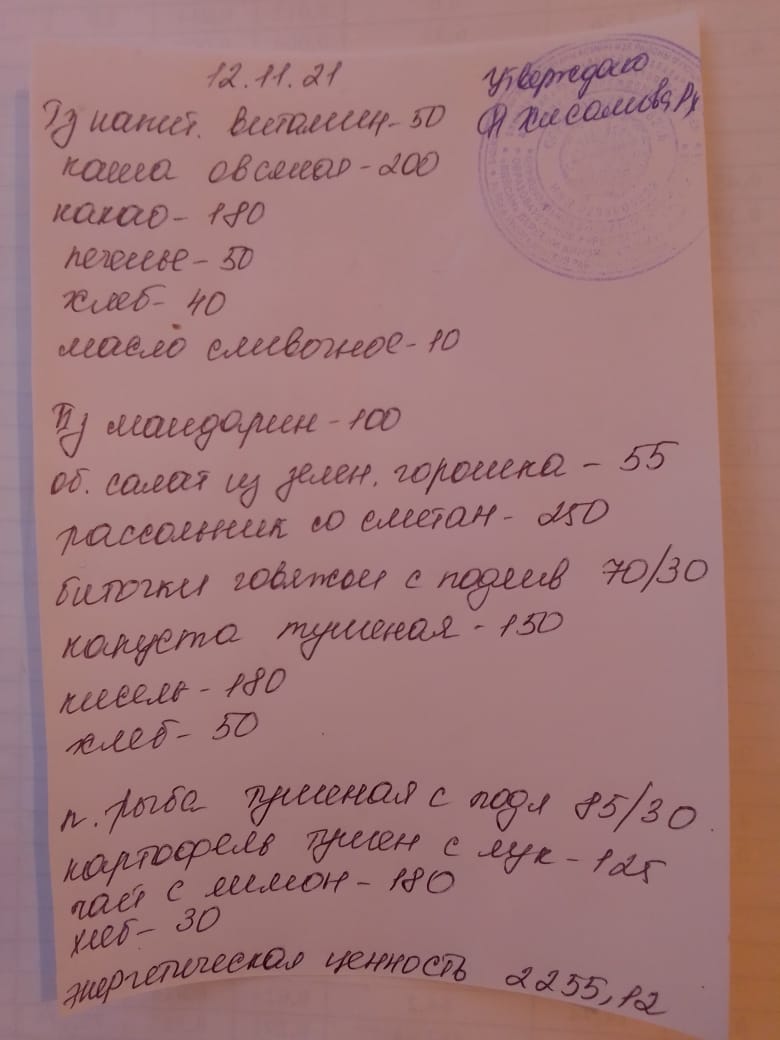 12.11.21
Утверждаю
Хисамова
Iз напит. витамин - 50
каша овсяная - 200
какао - 180
печенье - 50
хлеб - 40
масло сливочное - 10
IIз мандарин - 100
об. салат из зелен. горошка - 55
рассольник со сметан - 250
биточки говяжьи с подлив 70/30
капуста тушеная - 150
кисель - 180
хлеб - 50
п. рыба тушеная с подл 85/30
картофель тушен с лук - 125
чай с лимон - 180
хлеб - 30
энергетическая ценность 2255,12